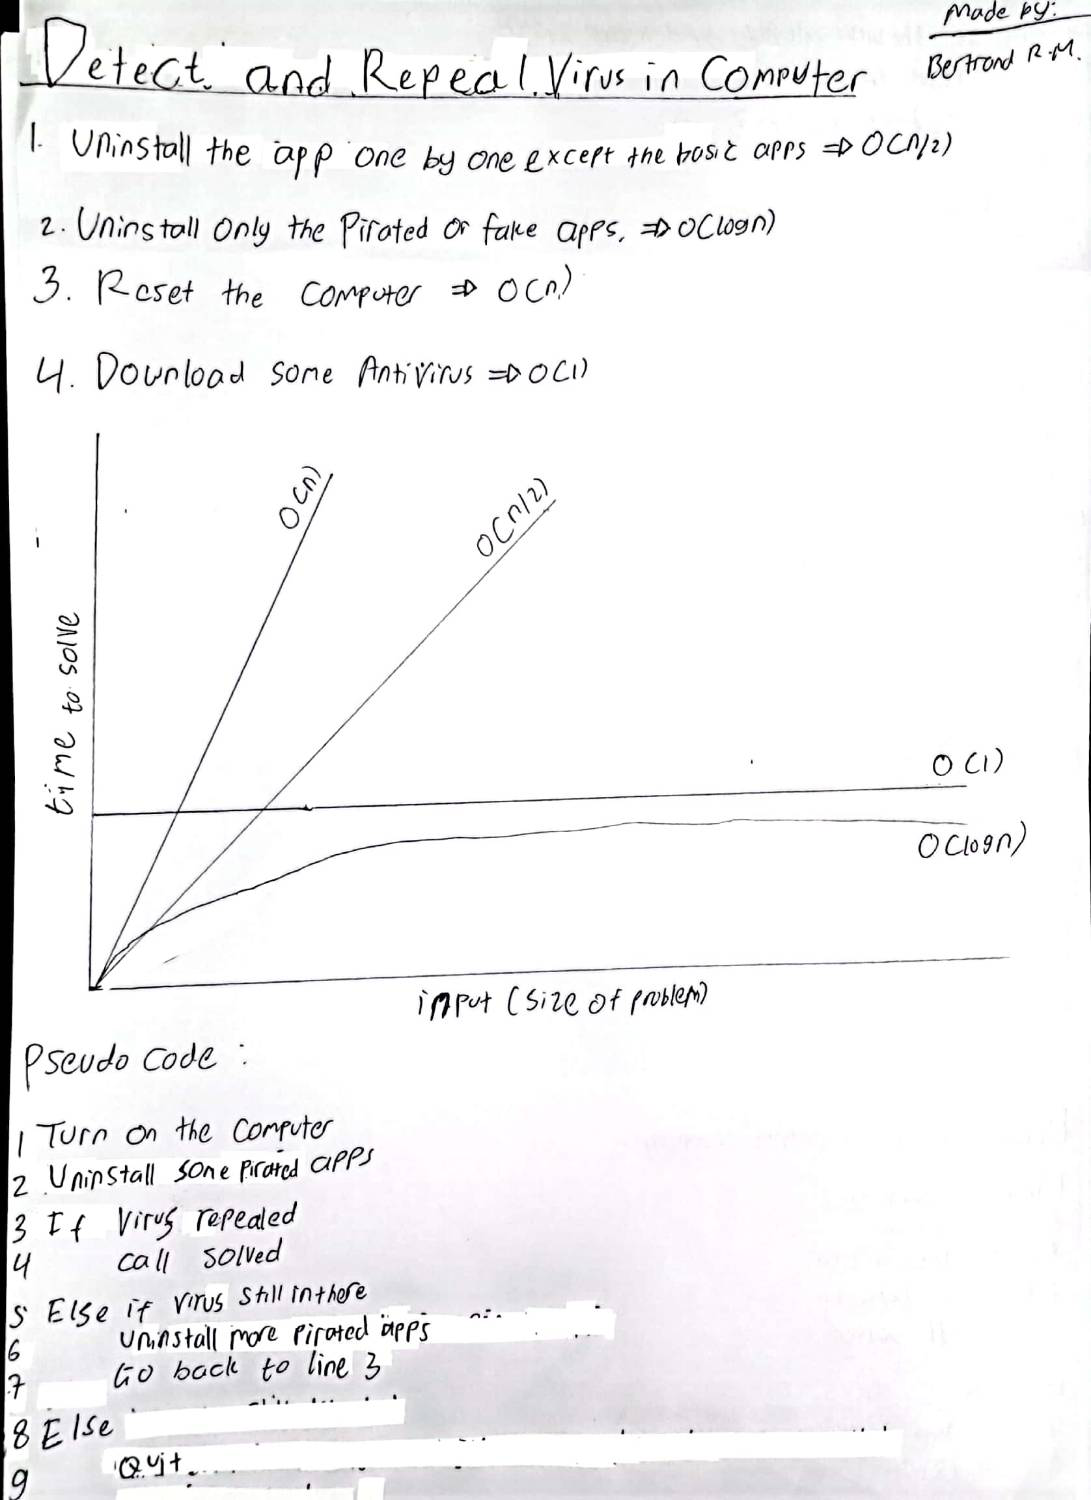 Made by:
Bertrand R.M.
Detect and Repeal Virus in Computer
1. Uninstall the app one by one except the basic apps ⇒ O(n/2)
2. Uninstall Only the Pirated or fake apps, ⇒ O(logn)
3. Reset the Computer ⇒ O(n)
4. Download some Antivirus ⇒ O(1)
O(n)
O(n/2)
time to solve
O(1)
O(logn)
input (size of problem)
Pseudo code :
1 Turn on the Computer
2 Uninstall some Pirated apps
3 If Virus repealed
4 call solved
5 Else if virus still inthere
6 Uninstall more Pirated apps
7 Go back to line 3
8 Else
9 Quit